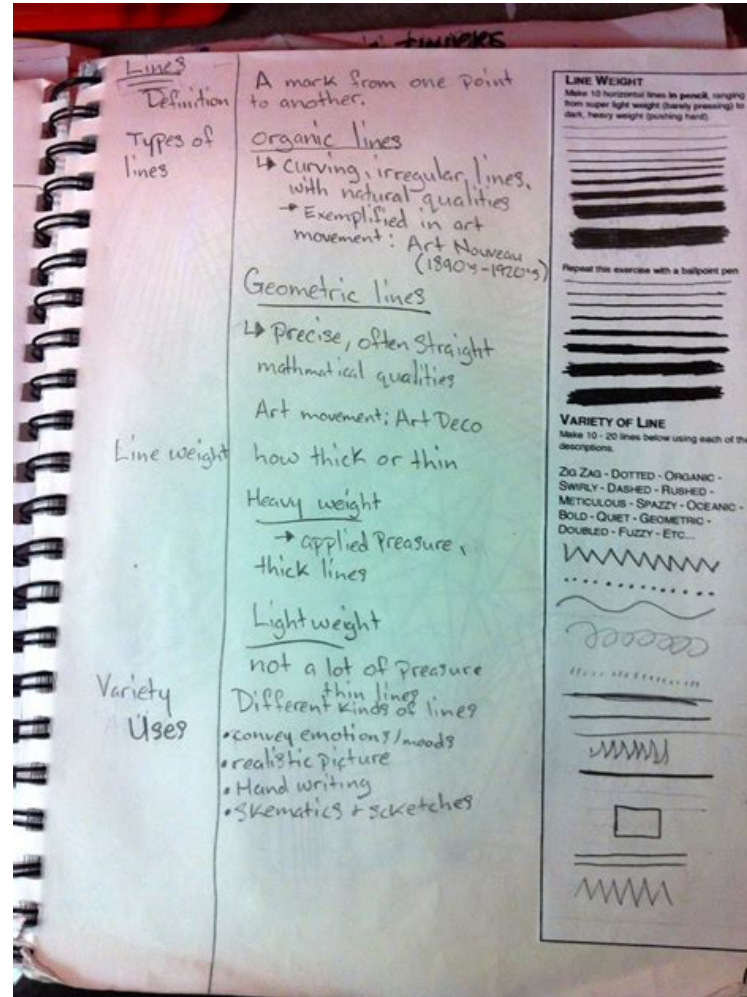 Lines
Definition
A mark from one point
to another.
Types of
lines
organic lines
↳ curving, irregular, lines,
with natural qualities
→ Exemplified in art
movement: Art Nouveau
(1890's-1920's)
Geometric lines
↳ Precise, often straight
mathmatical qualities
Art movement; Art Deco
Line weight
how thick or thin
Heavy weight
→ applied Preasure,
thick lines
Lightweight
not a lot of Preasure
thin lines
Variety
Different kinds of lines
Uses
• convey emotions/moods
• realistic picture
• Hand writing
• Skematics + scketches
LINE WEIGHT
Make 10 horizontal lines in pencil, ranging
from super light weight (barely pressing) to
dark, heavy weight (pushing hard).
Repeat this exercise with a ballpoint pen
VARIETY OF LINE
Make 10 - 20 lines below using each of the
descriptions.
ZIG ZAG - DOTTED - ORGANIC -
SWIRLY - DASHED - RUSHED -
METICULOUS - SPAZZY - OCEANIC -
BOLD - QUIET - GEOMETRIC -
DOUBLED - FUZZY - ETC...